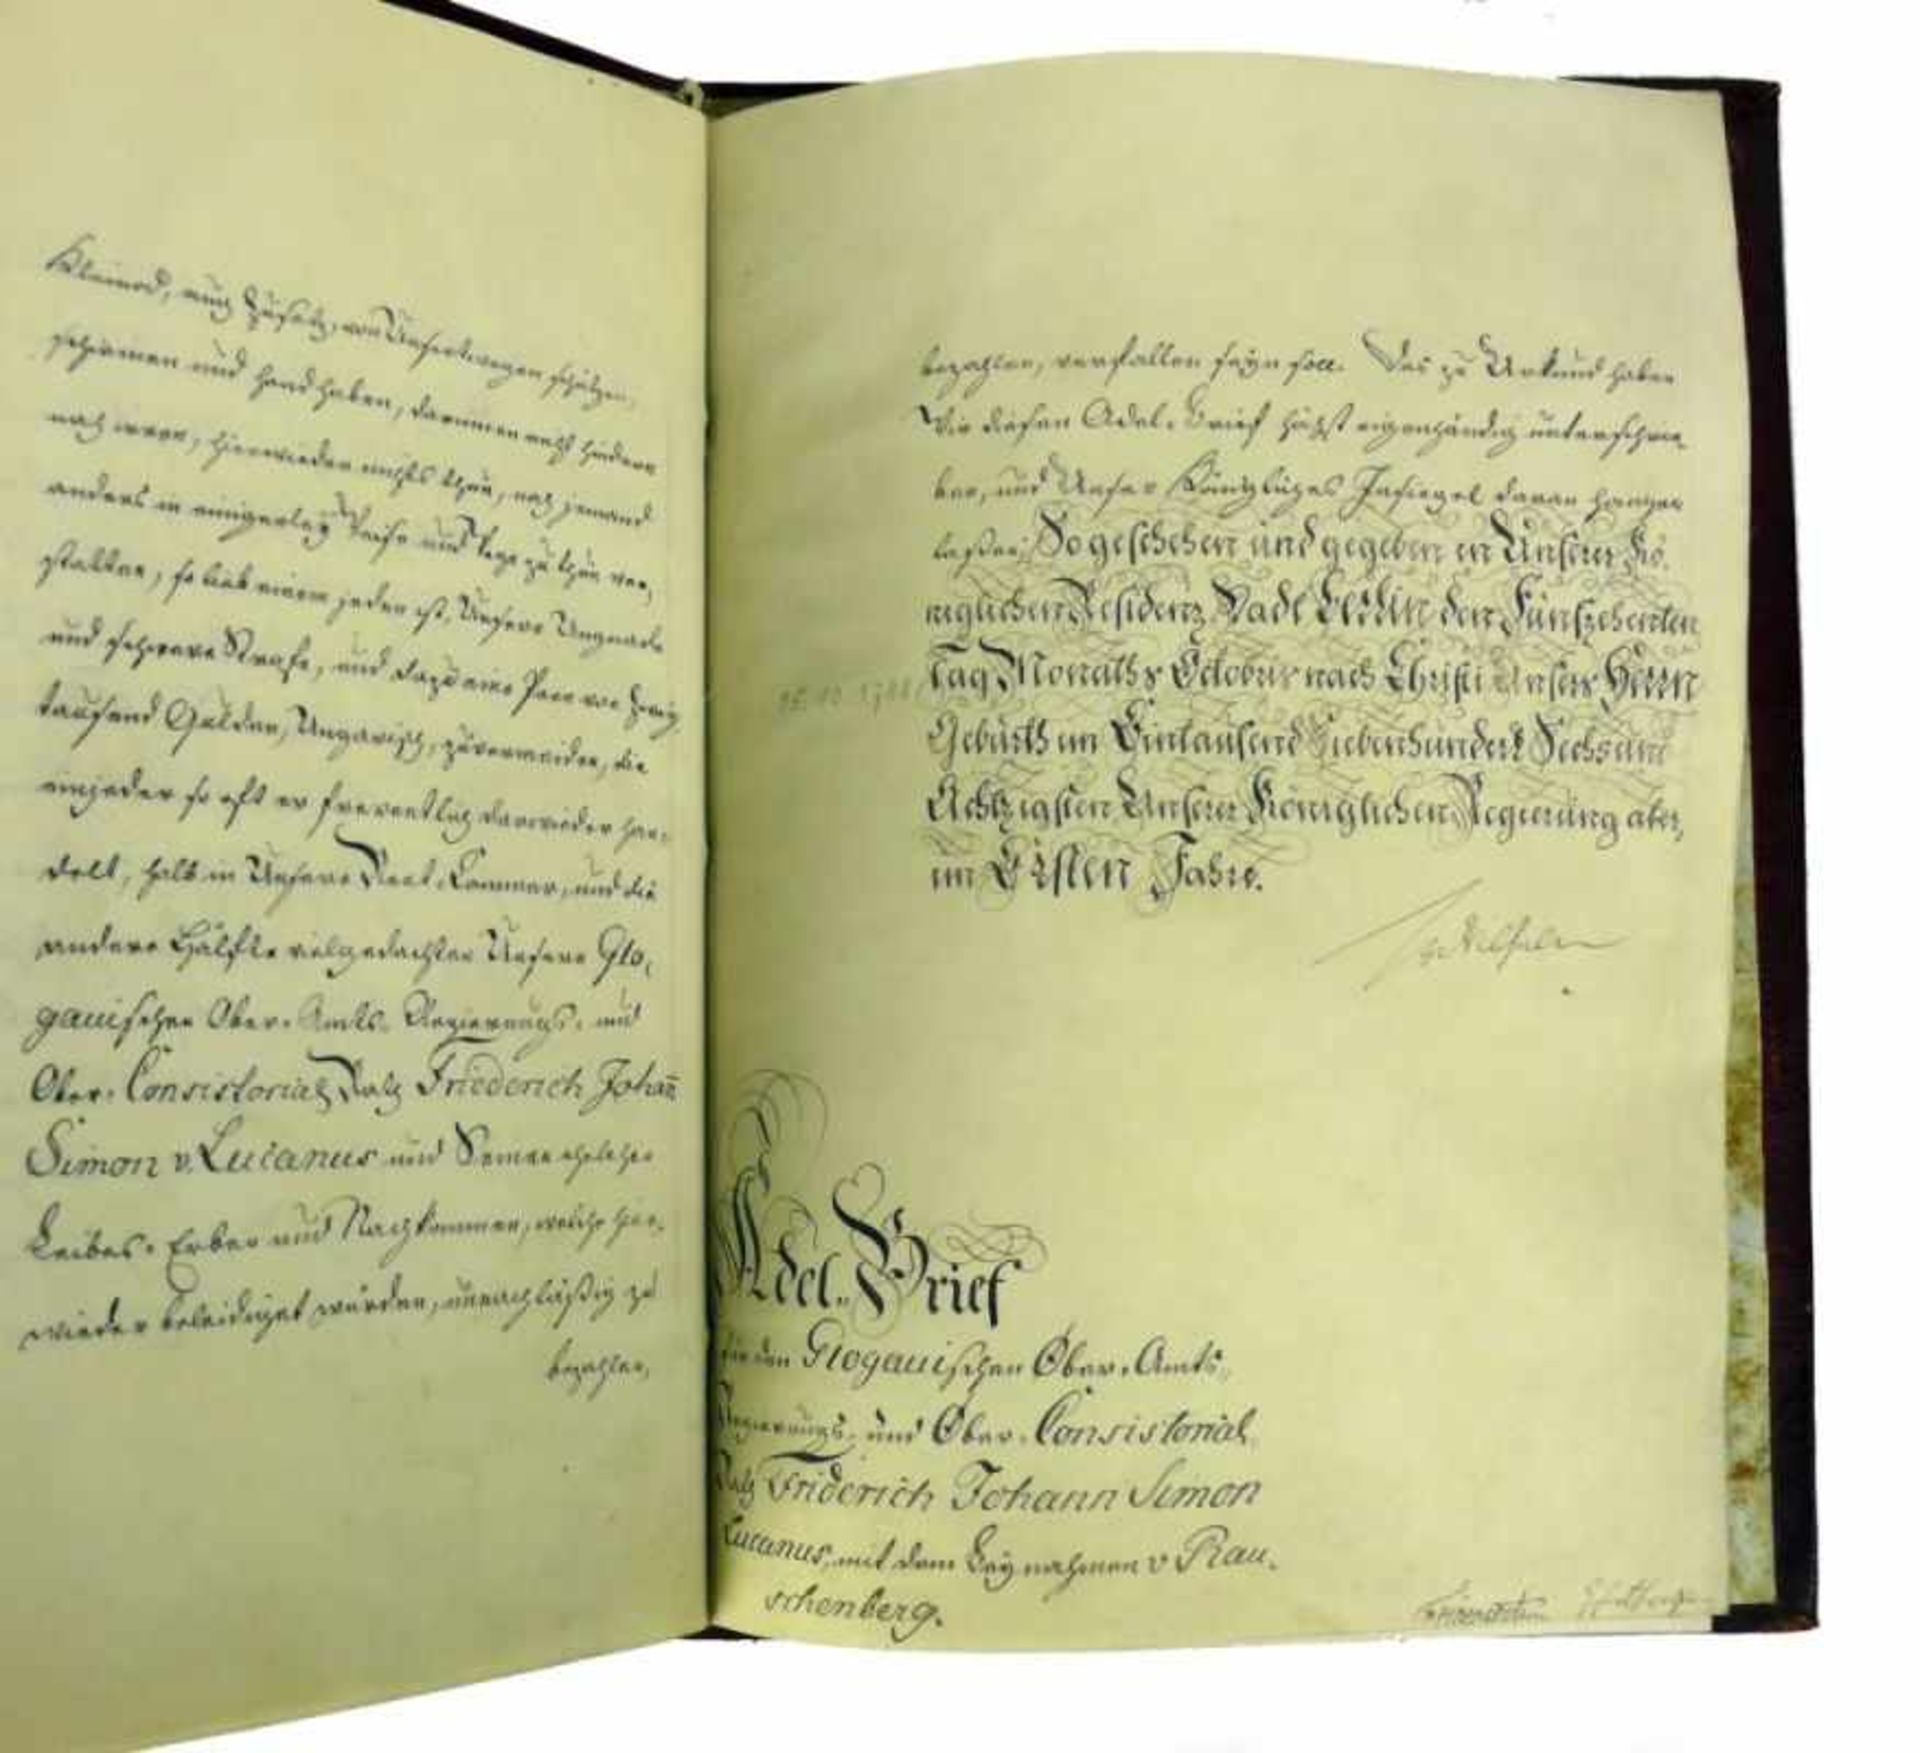 Kleinod, auch Zusatz, von Unsertwegen schützen,
schirmen und handhaben, darinnen nicht hindern
noch irren, hierwieder nichts thun, noch jemand
anders in einigerley Weise und Wege zu thun ver,
statten, so lieb einem jeden ist, Unsere Ungnade
und schwere Strafe, und dazu eine Poen von Zwey
tausend Gulden, Ungarisch, zu vermeiden, die
einjeder so oft er freventlich darwieder han-
delt, halb in Unsere Rent-Cammer, und die
andere Hälfte vielgedachten Unsern Glo,
gauischen Ober-Amts-Regierungs- und
Ober-Consistorial Rath Friederich Johan̄
Simon v. Lucanus und Seinen ehelichen
Leibes-Erben und Nachkommen, welche hier-
wieder beleidiget würden, unnachläßig zu
bezahlen,
bezahlen, verfallen seyn soll. Des zu Urkund haben
Wir diesen Adel-Brief höchst eigenhändig unterschrie-
ben, und Unser Königliches Insiegel daran hangen
laßen; So geschehen und gegeben in Unserer Kö,
niglichen Residenz Stadt Berlin den Funfzehenten
Tag Monaths Octobris nach Christi Unsers Herrn
Gebürth im Eintausend Siebenhundert Sechs und
Achtzigsten Unserer Königlichen Regierung aber,
im Ersten Jahre.
Fr Wilhelm
Adel-Brief
für den Glogauischen Ober-Amts,
Regierungs- und Ober-Consistorial
Rath Friderich Johann Simon
Lucanus, mit dem Beynahmen v Rau-
schenberg.